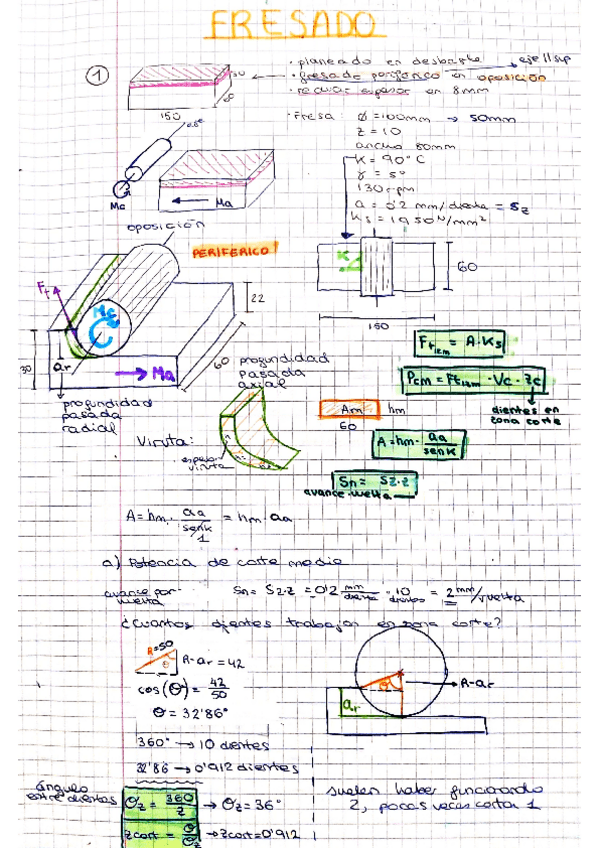 FRESADO
1
· planeado en desbaste → eje // sup
· fresado periférico en oposición
· rebajar espesor en 8mm
30
150
60
· Fresa: Ø = 100mm → 50mm
Z = 10
ancho 80mm
K = 90° C
γ = 5°
130 rpm
a = 0'2 mm/diente = Sz
Ks = 1950 N/mm²
Mc
Ma
oposición
PERIFÉRICO!
K
60
150
Ft
Mc
22
30
ar
Ma
60
profundidad
pasada
axial
profundidad
pasada
radial
Ft1cm = A·Ks
Pcm = Ft1cm · Vc · Zc
dientes en
zona corte
Am hm
60
A = hm · aa/senK
Viruta:
espesor
viruta
Sn = Sz·z
avance vuelta
A = hm · aa/senK = hm · aa
1
a) Potencia de corte media
avance por
vuelta
Sn = Sz·Z = 0'2 mm/diente · 10 dientes = 2 mm/vuelta
¿Cuántos dientes trabajan en zona corte?
R=50
θ
R-ar = 42
cos(θ) = 42/50
θ = 32'86°
θ
R-ar
ar
360° → 10 dientes
32'86 → 0'912 dientes
ángulo
entre dientes
θz = 360/z → θz = 36°
zcort = θ/θz → zcort = 0'912
suelen haber funcionando
2, pocas veces corta 1